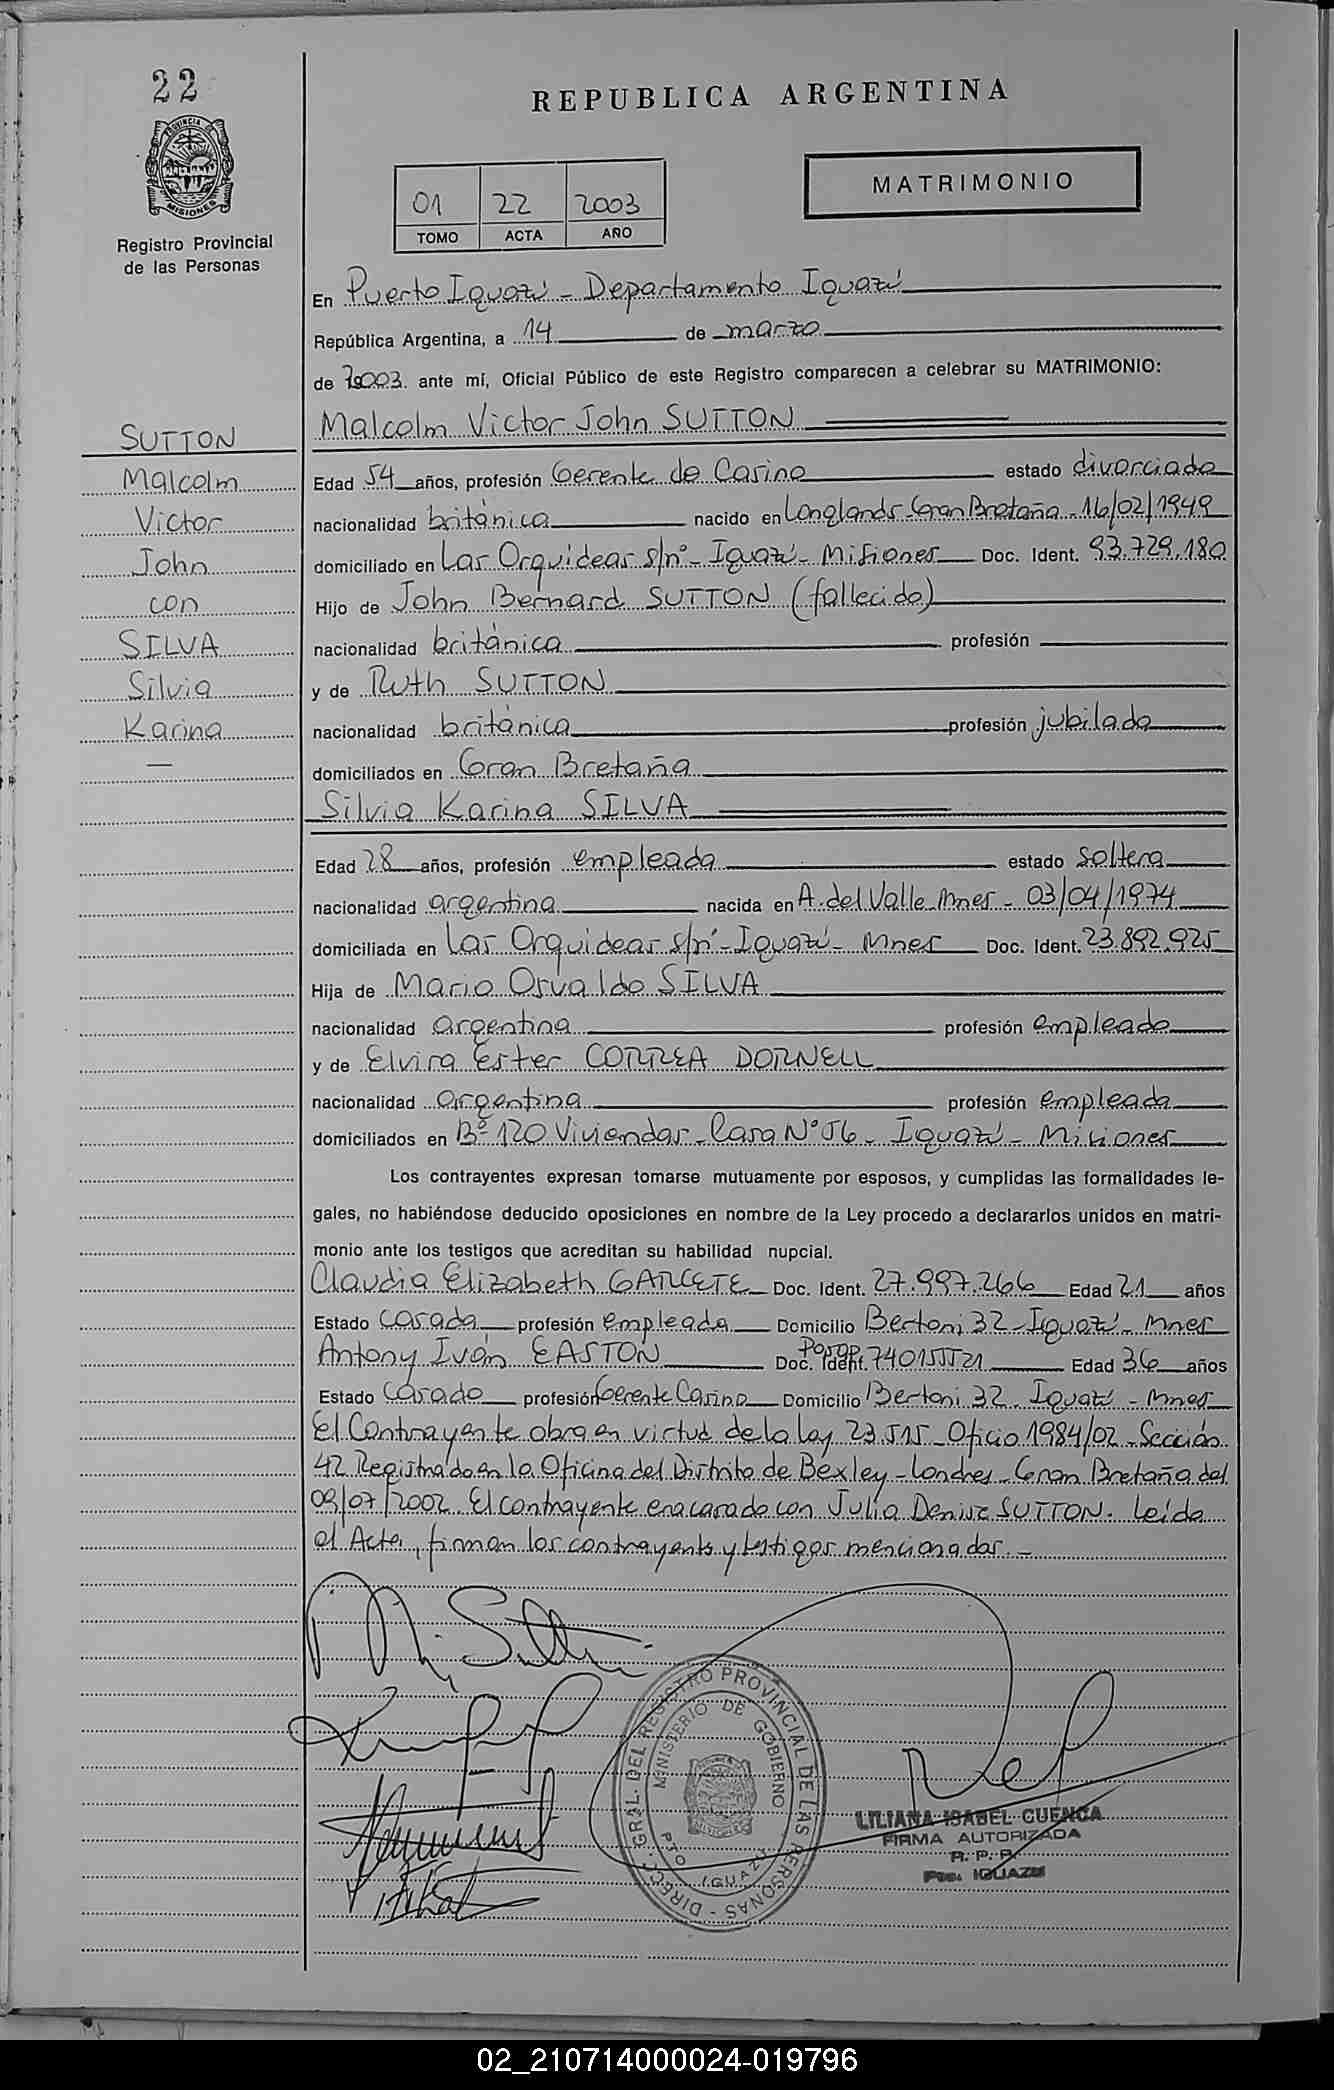 22
PROVINCIA DE
MISIONES
Registro Provincial
de las Personas
REPUBLICA ARGENTINA
MATRIMONIO
01 22 2003
TOMO ACTA AÑO
En Puerto Iguazú - Departamento Iguazú
República Argentina, a 14 de marzo
de 2003 ante mí, Oficial Público de este Registro comparecen a celebrar su MATRIMONIO:
SUTTON
Malcolm
Victor
John
con
SILVA
Silvia
Karina
—
Malcolm Victor John SUTTON
Edad 54 años, profesión Gerente de Casino estado divorciado
nacionalidad británica nacido en Longlands-Gran Bretaña-16/02/1949
domiciliado en Las Orquídeas s/nº- Iguazú- Misiones Doc. Ident. 93.729.180
Hijo de John Bernard SUTTON (fallecido)
nacionalidad británica profesión
y de Ruth SUTTON
nacionalidad británica profesión jubilada
domiciliados en Gran Bretaña
Silvia Karina SILVA
Edad 28 años, profesión empleada estado soltera
nacionalidad argentina nacida en A. del Valle-Mnes - 03/04/1974
domiciliada en Las Orquideas s/nº-Iguazú- Mnes Doc. Ident. 23.892.925
Hija de Mario Osvaldo SILVA
nacionalidad argentina profesión empleado
y de Elvira Ester CORREA DORNELL
nacionalidad argentina profesión empleada
domiciliados en Bº 120 Viviendas-Casa Nº 56- Iguazú- Misiones
Los contrayentes expresan tomarse mutuamente por esposos, y cumplidas las formalidades le-
gales, no habiéndose deducido oposiciones en nombre de la Ley procedo a declararlos unidos en matri-
monio ante los testigos que acreditan su habilidad nupcial.
Claudia Elizabeth GARCETE Doc. Ident. 27.997.266 Edad 21 años
Estado casada profesión empleada Domicilio Bertoni 32-Iguazú-Mnes
Antony Iván EASTON Doc. Ident. Pasap. 740155521 Edad 36 años
Estado Casado profesión Gerente Casino Domicilio Bertoni 32. Iguazú - Mnes
El Contrayente obra en virtud de la ley 23.515-Oficio 1984/02-Sección
42 Registrado en la Oficina del Distrito de Bexley-Londres-Gran Bretaña del
09/07/2002. El contrayente era casado con Julia Denise SUTTON. Leída
el Acta, firman los contrayentes y testigos mencionados.-
M. Sutton
DIREC. GRAL. DEL REGISTRO PROVINCIAL DE LAS PERSONAS -
MINISTERIO DE GOBIERNO
PTO IGUAZU
LILIANA ISABEL CUENCA
FIRMA AUTORIZADA
R. P. P.
Pto. IGUAZU
02_210714000024-019796